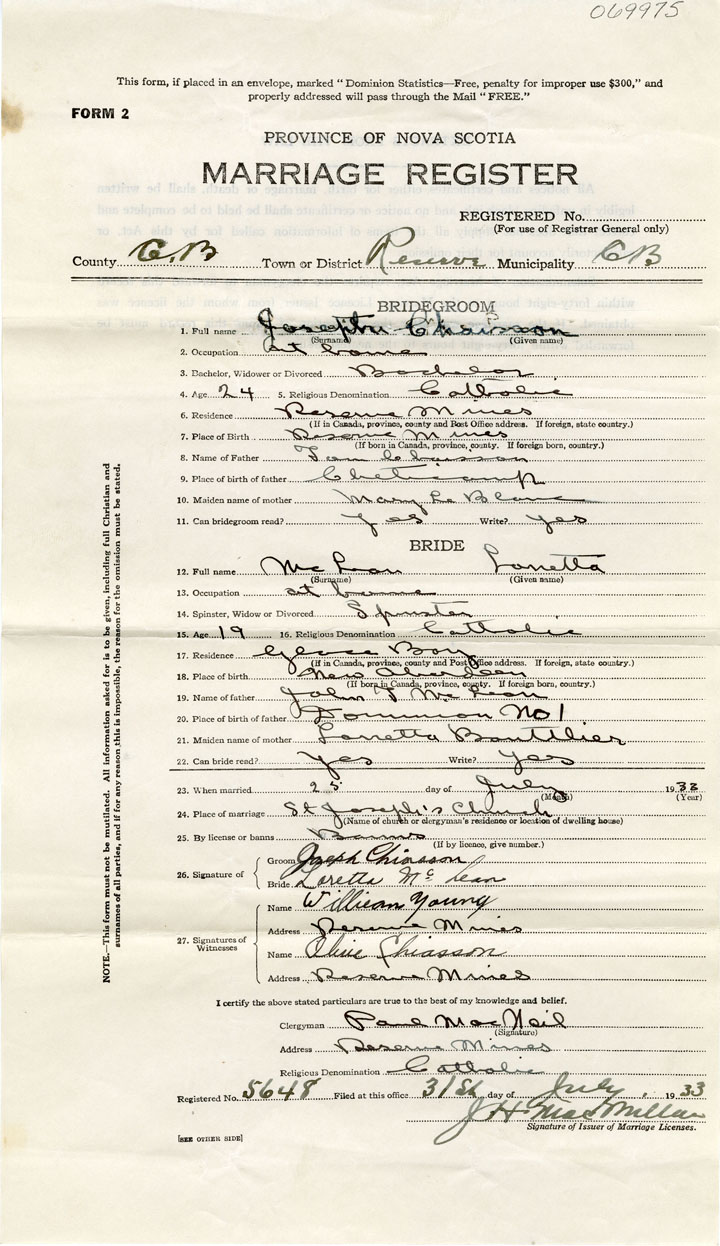 069975
This form, if placed in an envelope, marked "Dominion Statistics—Free, penalty for improper use $300," and
properly addressed will pass through the Mail "FREE."
FORM 2
PROVINCE OF NOVA SCOTIA
MARRIAGE REGISTER
REGISTERED No.
(For use of Registrar General only)
County C.B Town or District Reserve Municipality CB
BRIDEGROOM
1. Full name Joseph Chiasson
(Surname) (Given name)
2. Occupation at home
3. Bachelor, Widower or Divorced Bachelor
4. Age 24 5. Religious Denomination Catholic
6. Residence Reserve Mines
(If in Canada, province, county and Post Office address. If foreign, state country.)
7. Place of Birth Reserve Mines
(If born in Canada, province, county. If foreign born, country.)
8. Name of Father Chiasson
9. Place of birth of father Cheticamp
10. Maiden name of mother Mary Le Blanc
11. Can bridegroom read? Yes Write? Yes
BRIDE
12. Full name McLean Lorretta
(Surname) (Given name)
13. Occupation at home
14. Spinster, Widow or Divorced Spinster
15. Age 19 16. Religious Denomination Catholic
17. Residence Glace Bay
(If in Canada, province, county and Post Office address. If foreign, state country.)
18. Place of birth New Aberdeen
(If born in Canada, province, county. If foreign born, country.)
19. Name of father John J McLean
20. Place of birth of father Dominion No 1
21. Maiden name of mother Lorretta Boutilier
22. Can bride read? Yes Write? Yes
23. When married 25 day of July 1933
(Month) (Year)
24. Place of marriage St Joseph's Church
(Name of church or clergyman's residence or location of dwelling house)
25. By license or banns Banns
(If by licence, give number.)
26. Signature of
Groom Joseph Chiasson
Bride Loretta Mc Lean
27. Signatures of Witnesses
Name William Young
Address Reserve Mines
Name Olive Chiasson
Address Reserve Mines
I certify the above stated particulars are true to the best of my knowledge and belief.
Clergyman Paul MacNeil
(Signature)
Address Reserve Mines
Religious Denomination Catholic
Registered No. 5648 Filed at this office 31st day of July, 1933
J H MacMillan
Signature of Issuer of Marriage Licenses.
[SEE OTHER SIDE]
NOTE.—This form must not be mutilated. All information asked for is to be given, including full Christian and
surnames of all parties, and if for any reason this is impossible, the reason for the omission must be stated.